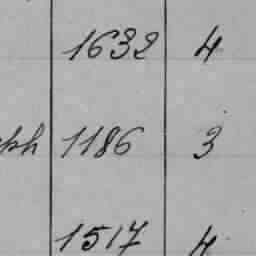 1632 4
ph 1186 3
1517 4